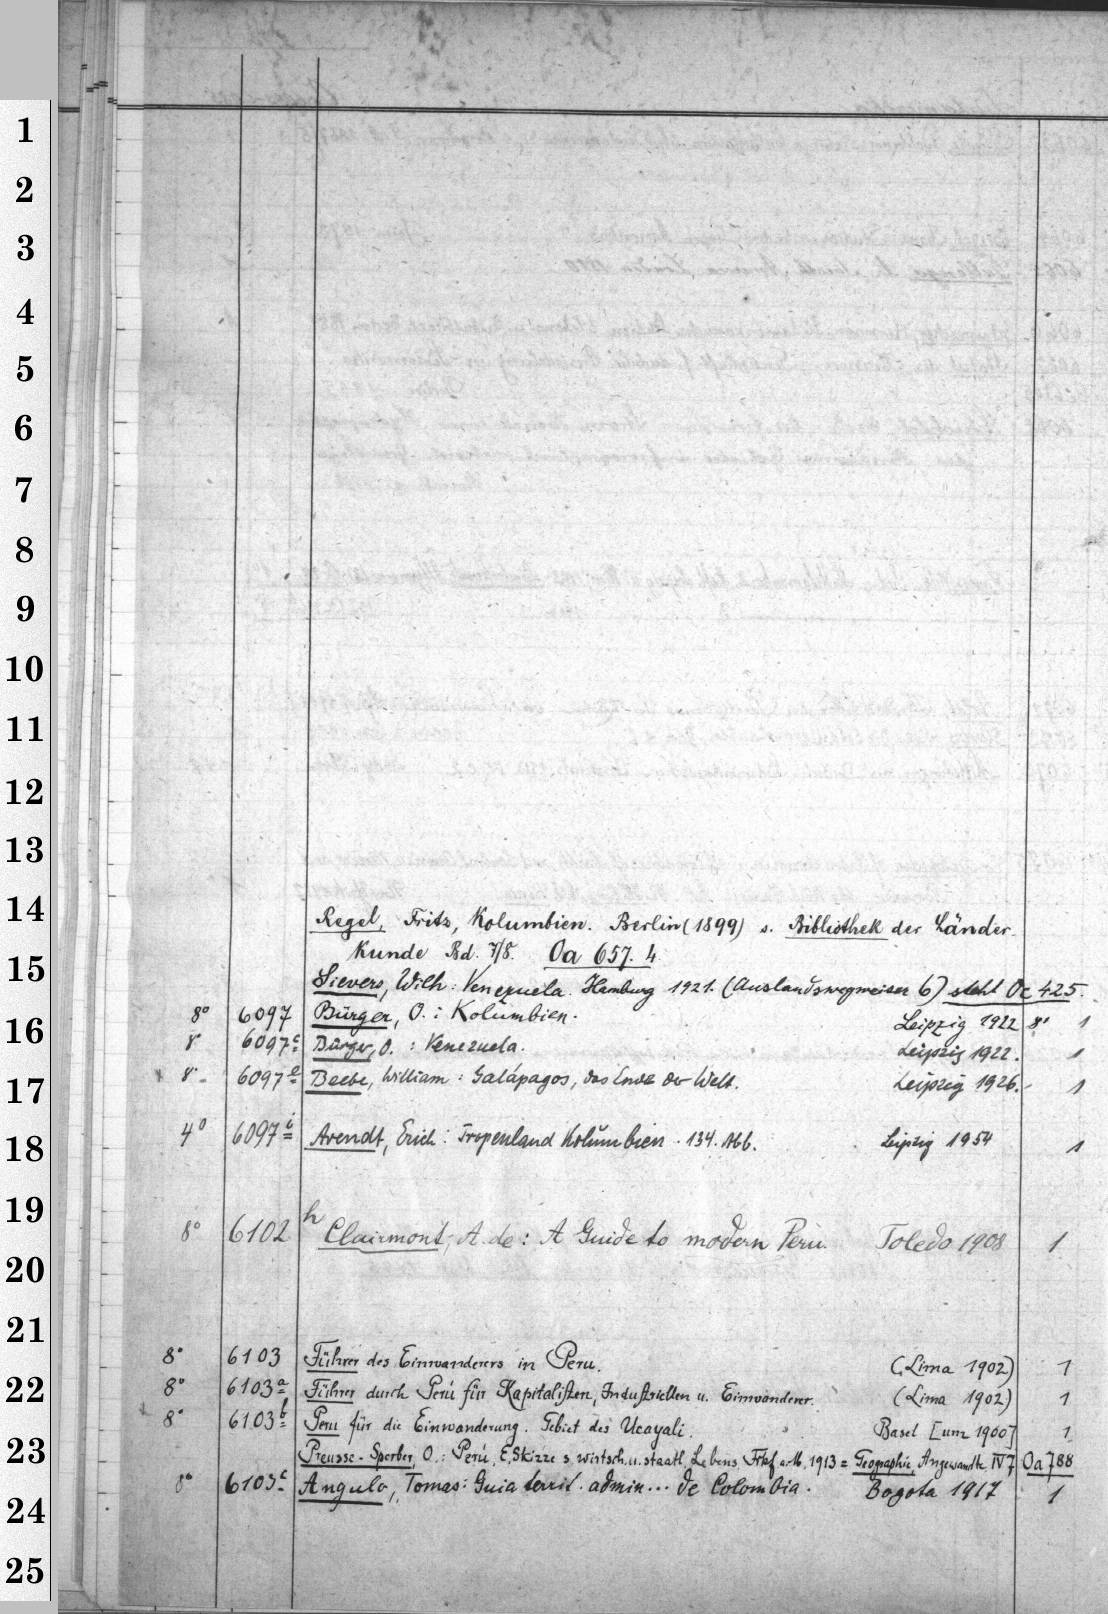 1
2
3
4
5
6
7
8
9
10
11
12
13
14
15
16
17
18
19
20
21
22
23
24
25
Regel, Fritz, Kolumbien. Berlin (1899) s. Bibliothek der Länder-
kunde Bd. 7/8. Oa 657. 4
Sievers, Wilh: Venezuela. Hamburg 1921. (Auslandswegweiser 6) steht Oc 425.
8° 6097 Bürger, O.: Kolumbien. Leipzig 1922 8° 1
8° 6097c Bürger, O. : Venezuela. Leipzig 1922. 1
8° 6097e Beebe, William: Galápagos, das Ende der Welt. Leipzig 1926. 1
4° 6097i Arendt, Erich: Tropenland Kolumbien. 134. Abb. Leipzig 1954 1
8° 6102h Clairmont, A. de: A Guide to modern Peru. Toledo 1908 1
8° 6103 Führer des Einwanderers in Peru. (Lima 1902) 1
8° 6103a Führer durch Perú für Kapitalisten, Industriellen u. Einwanderer. (Lima 1902) 1
8° 6103b Peru für die Einwanderung. Gebiet des Ucayali. Basel [um 1900] 1
Preusse-Sperber, O.: Perú, E. Skizze s. wirtsch. u. staatl. Lebens. Frkf a. M. 1913 = Geographie, Angewandte IV 7 Oa 788
8° 6103c Angulo, Tomas: Guia territ. admin... de Colombia. Bogota 1917 1